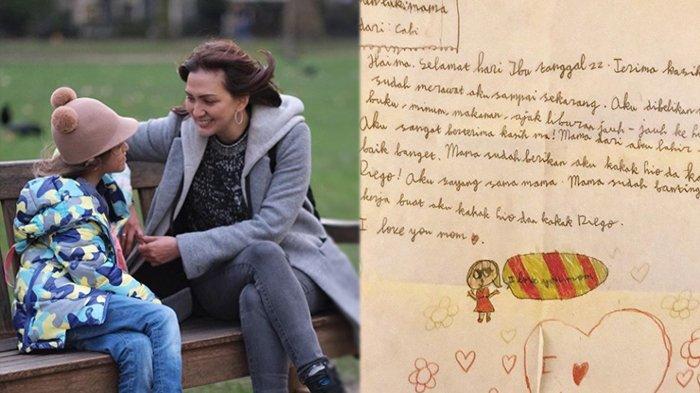 untuk: mama
dari: Cabi
Hai ma. Selamat hari Ibu tanggal 22. Terima kasih
sudah merawat aku sampai sekarang. Aku dibelikan
buku, minum, makanan, ajak liburan jauh-jauh ke
Aku sangat berterima kasih ma! Mama dari aku lahir
baik banget. Mama sudah berikan aku kakak Gio da
Diego! Aku sayang sama mama. Mama sudah banting
kerja buat aku kakak Gio dan kakak Diego.
I love you mom
I love you mom
I